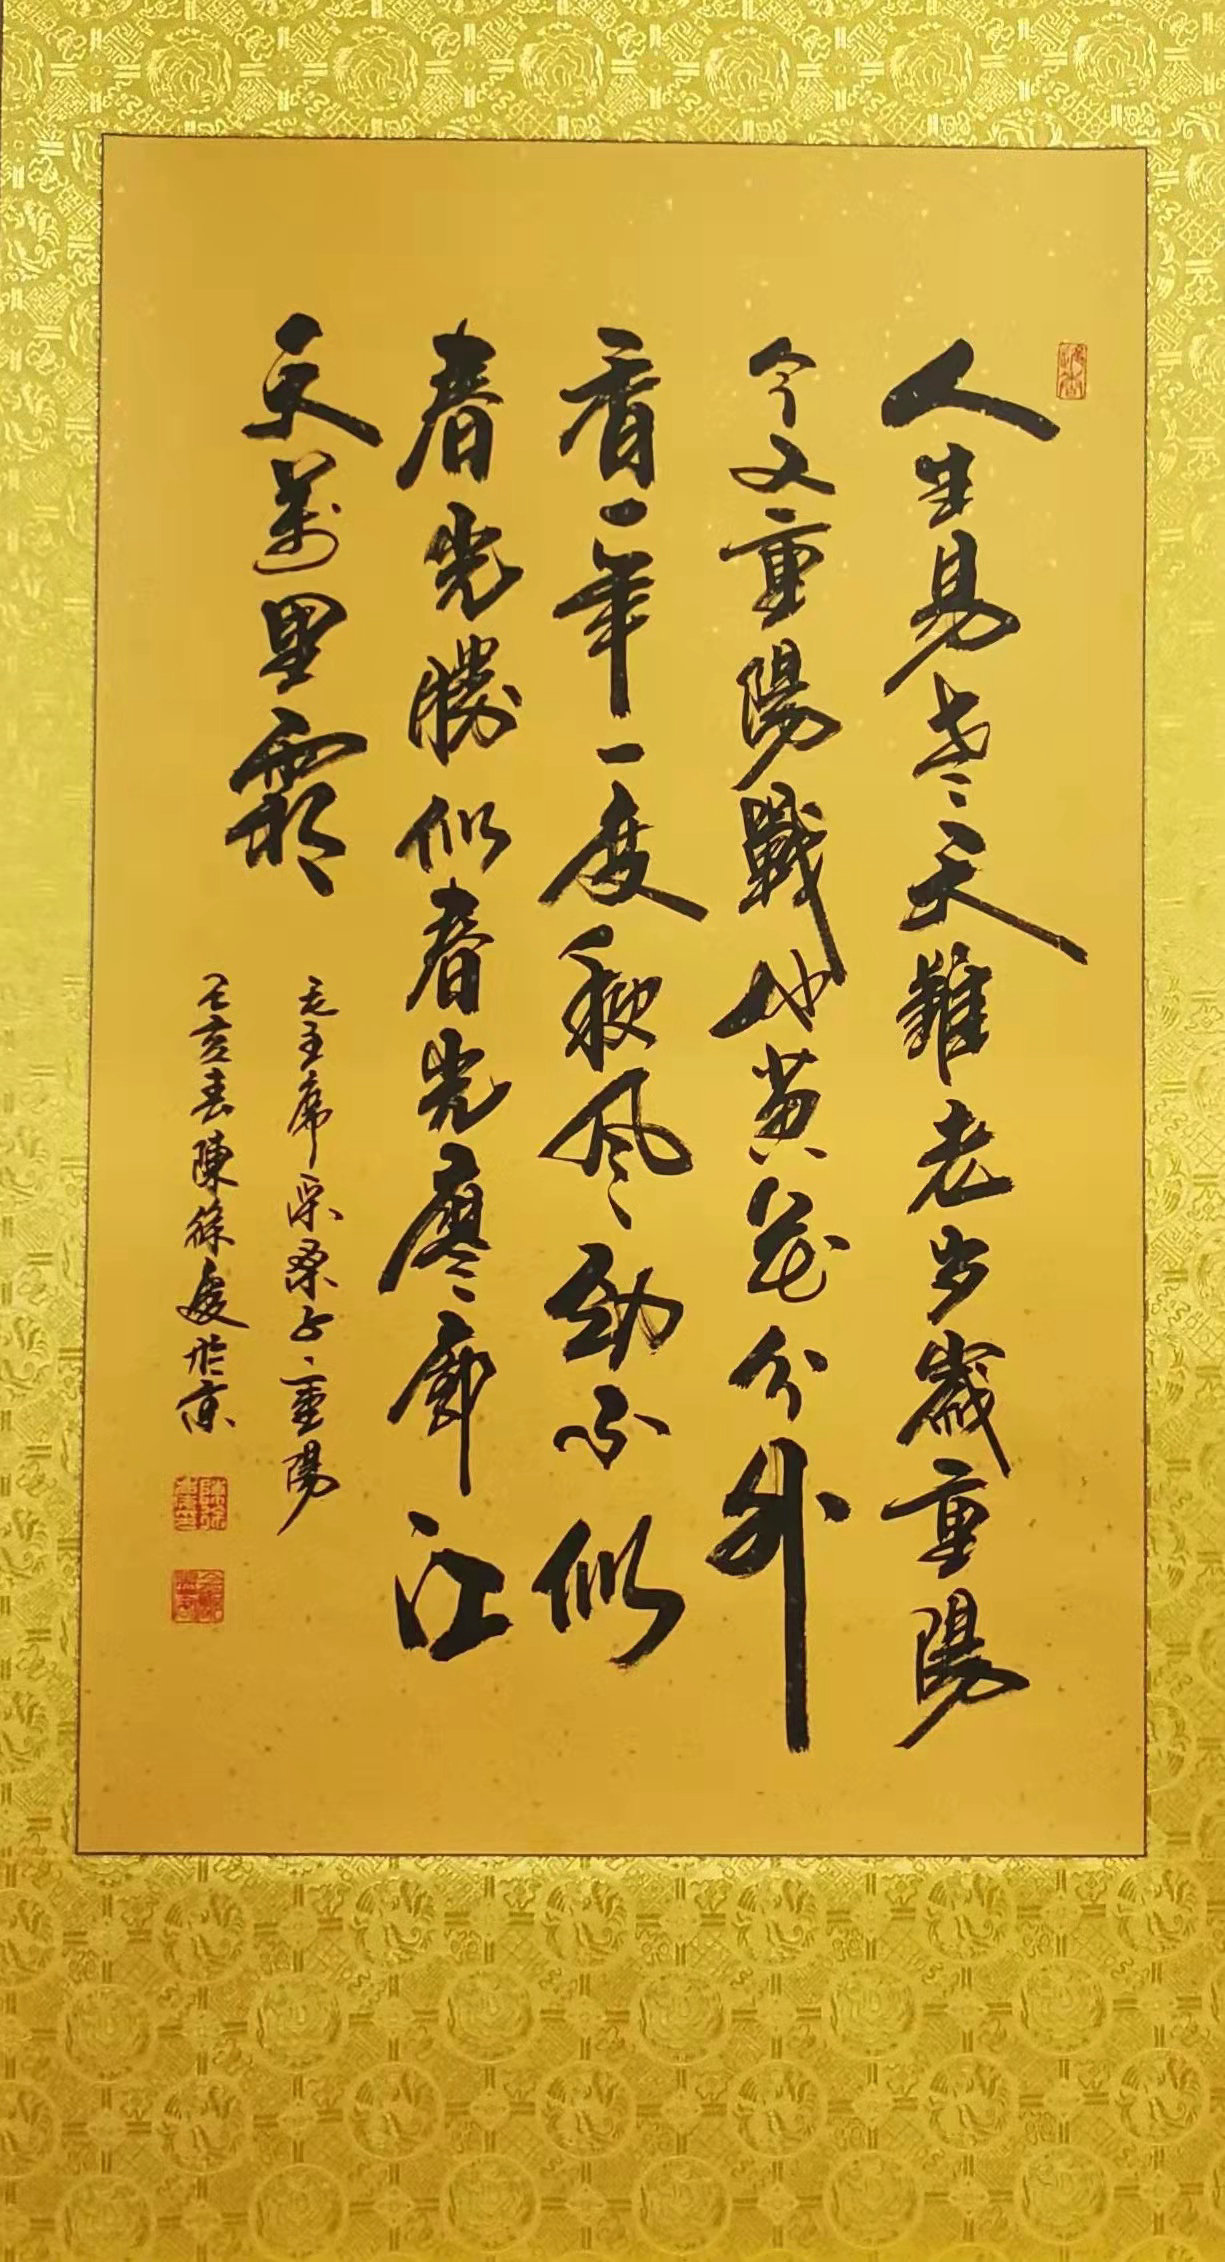 人生易老天難老岁歲重陽
今又重陽戰地黄花分外
香一年一度秋风劲不似
春光勝似春光廖廓江
天萬里霜
毛主席采桑子重陽
己亥春陳徐於京